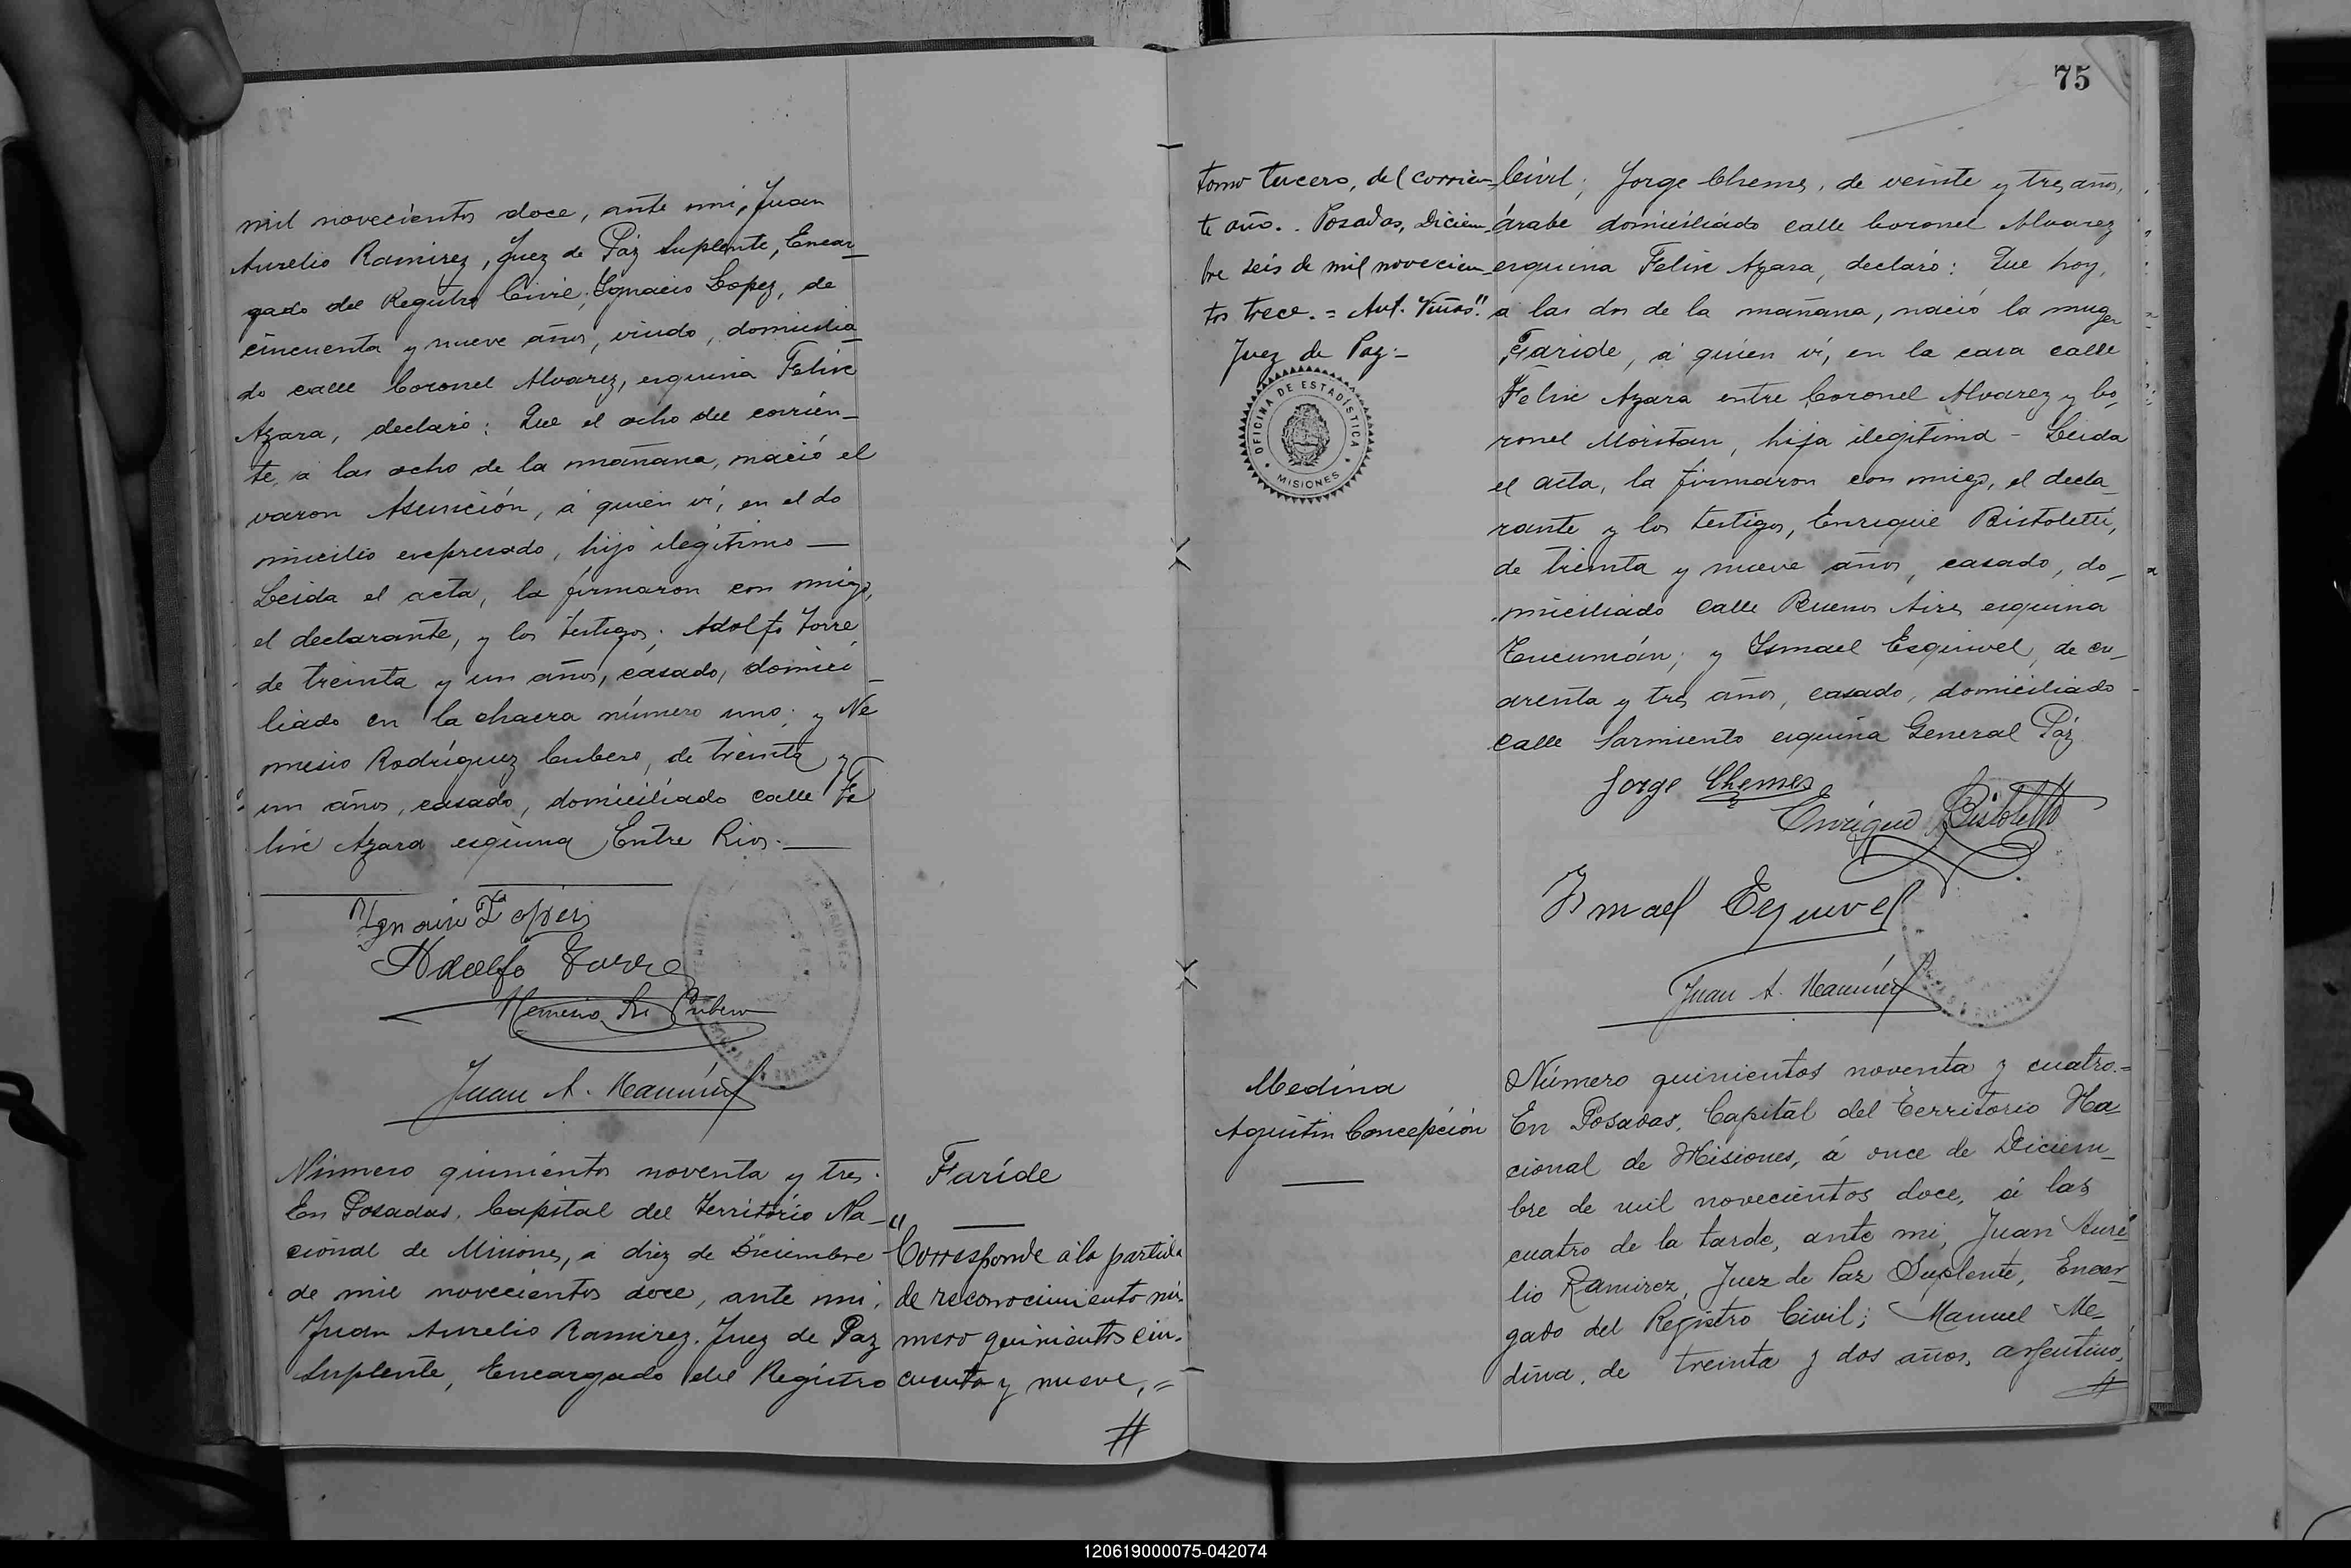 mil novecientos doce, ante mi, Juan
Aurelio Ramirez, Juez de Paz Suplente, Encar_
gado del Registro Civil; Ignacio Lopez, de
cincuenta y nueve años, viudo, domicilia_
do calle Coronel Alvarez, esquina Felix
Azara, declaró: Que el ocho del corrien_
te, a las ocho de la mañana, nació el
varon Asunción, á quien ví, en el do
micilio expresado, hijo ilegitimo —
Leida el acta, la firmaron con migo,
el declarante, y los testigos; Adolfo Torre
de treinta y un años, casado, domici_
liado en la chacra número uno; y Ne
mesio Rodríguez Cubero, de treinta y
un años, casado, domiciliado calle Fe
lix Azara esquina Entre Rios.—
Ignacio Lopez
Adolfo Torre
Nemesio R. Cubero
Juan A. Ramírez
Número quinientos noventa y tres.
En Posadas, Capital del Territorio Na_
cional de Misiones, a diez de Diciembre
de mil novecientos doce, ante mi,
Juan Aurelio Ramirez, Juez de Paz
Suplente, Encargado del Registro
Faríde
"Corresponde á la partida
de reconocimiento nú-
mero quinientos cin-
cuenta y nueve, =
#
75
tomo tercero, del corrien_
te año.. Posadas, Diciem_
bre seis de mil novecien_
tos trece. = Ant. Viñas".
Juez de Paz.—
OFICINA DE ESTADÍSTICA
MISIONES
Civil; Jorge Chemes, de veinte y tres años,
árabe domiciliado calle Coronel Alvarez
esquina Felix Azara, declaró: Que hoy,
a las dos de la mañana, nació la muger
Faride, á quien ví, en la casa calle
Felix Azara entre Coronel Alvarez y Co_
ronel Moritan, hija ilegitima — Leida
el acta, la firmaron con migo, el decla_
rante y los testigos, Enrique Bistoletti,
de treinta y nueve años, casado, do_
miciliado calle Buenos Aires esquina
Tucumán; y Ismael Esquivel, de cu_
arenta y tres años, casado, domiciliado
calle Sarmiento esquina General Páz
Jorge Chemes
Enrique Bistoletti
Ismael Esquivel
Juan A. Ramírez
Medina
Agustin Concepción
Número quinientos noventa y cuatro.=
En Posadas, Capital del Territorio Na_
cional de Misiones, á once de Diciem_
bre de mil novecientos doce, á las
cuatro de la tarde, ante mi, Juan Auré
lio Ramirez, Juez de Paz Suplente, Encar_
gado del Registro Civil; Manuel Me_
dina, de treinta y dos años, argentino,
#
120619000075-042074